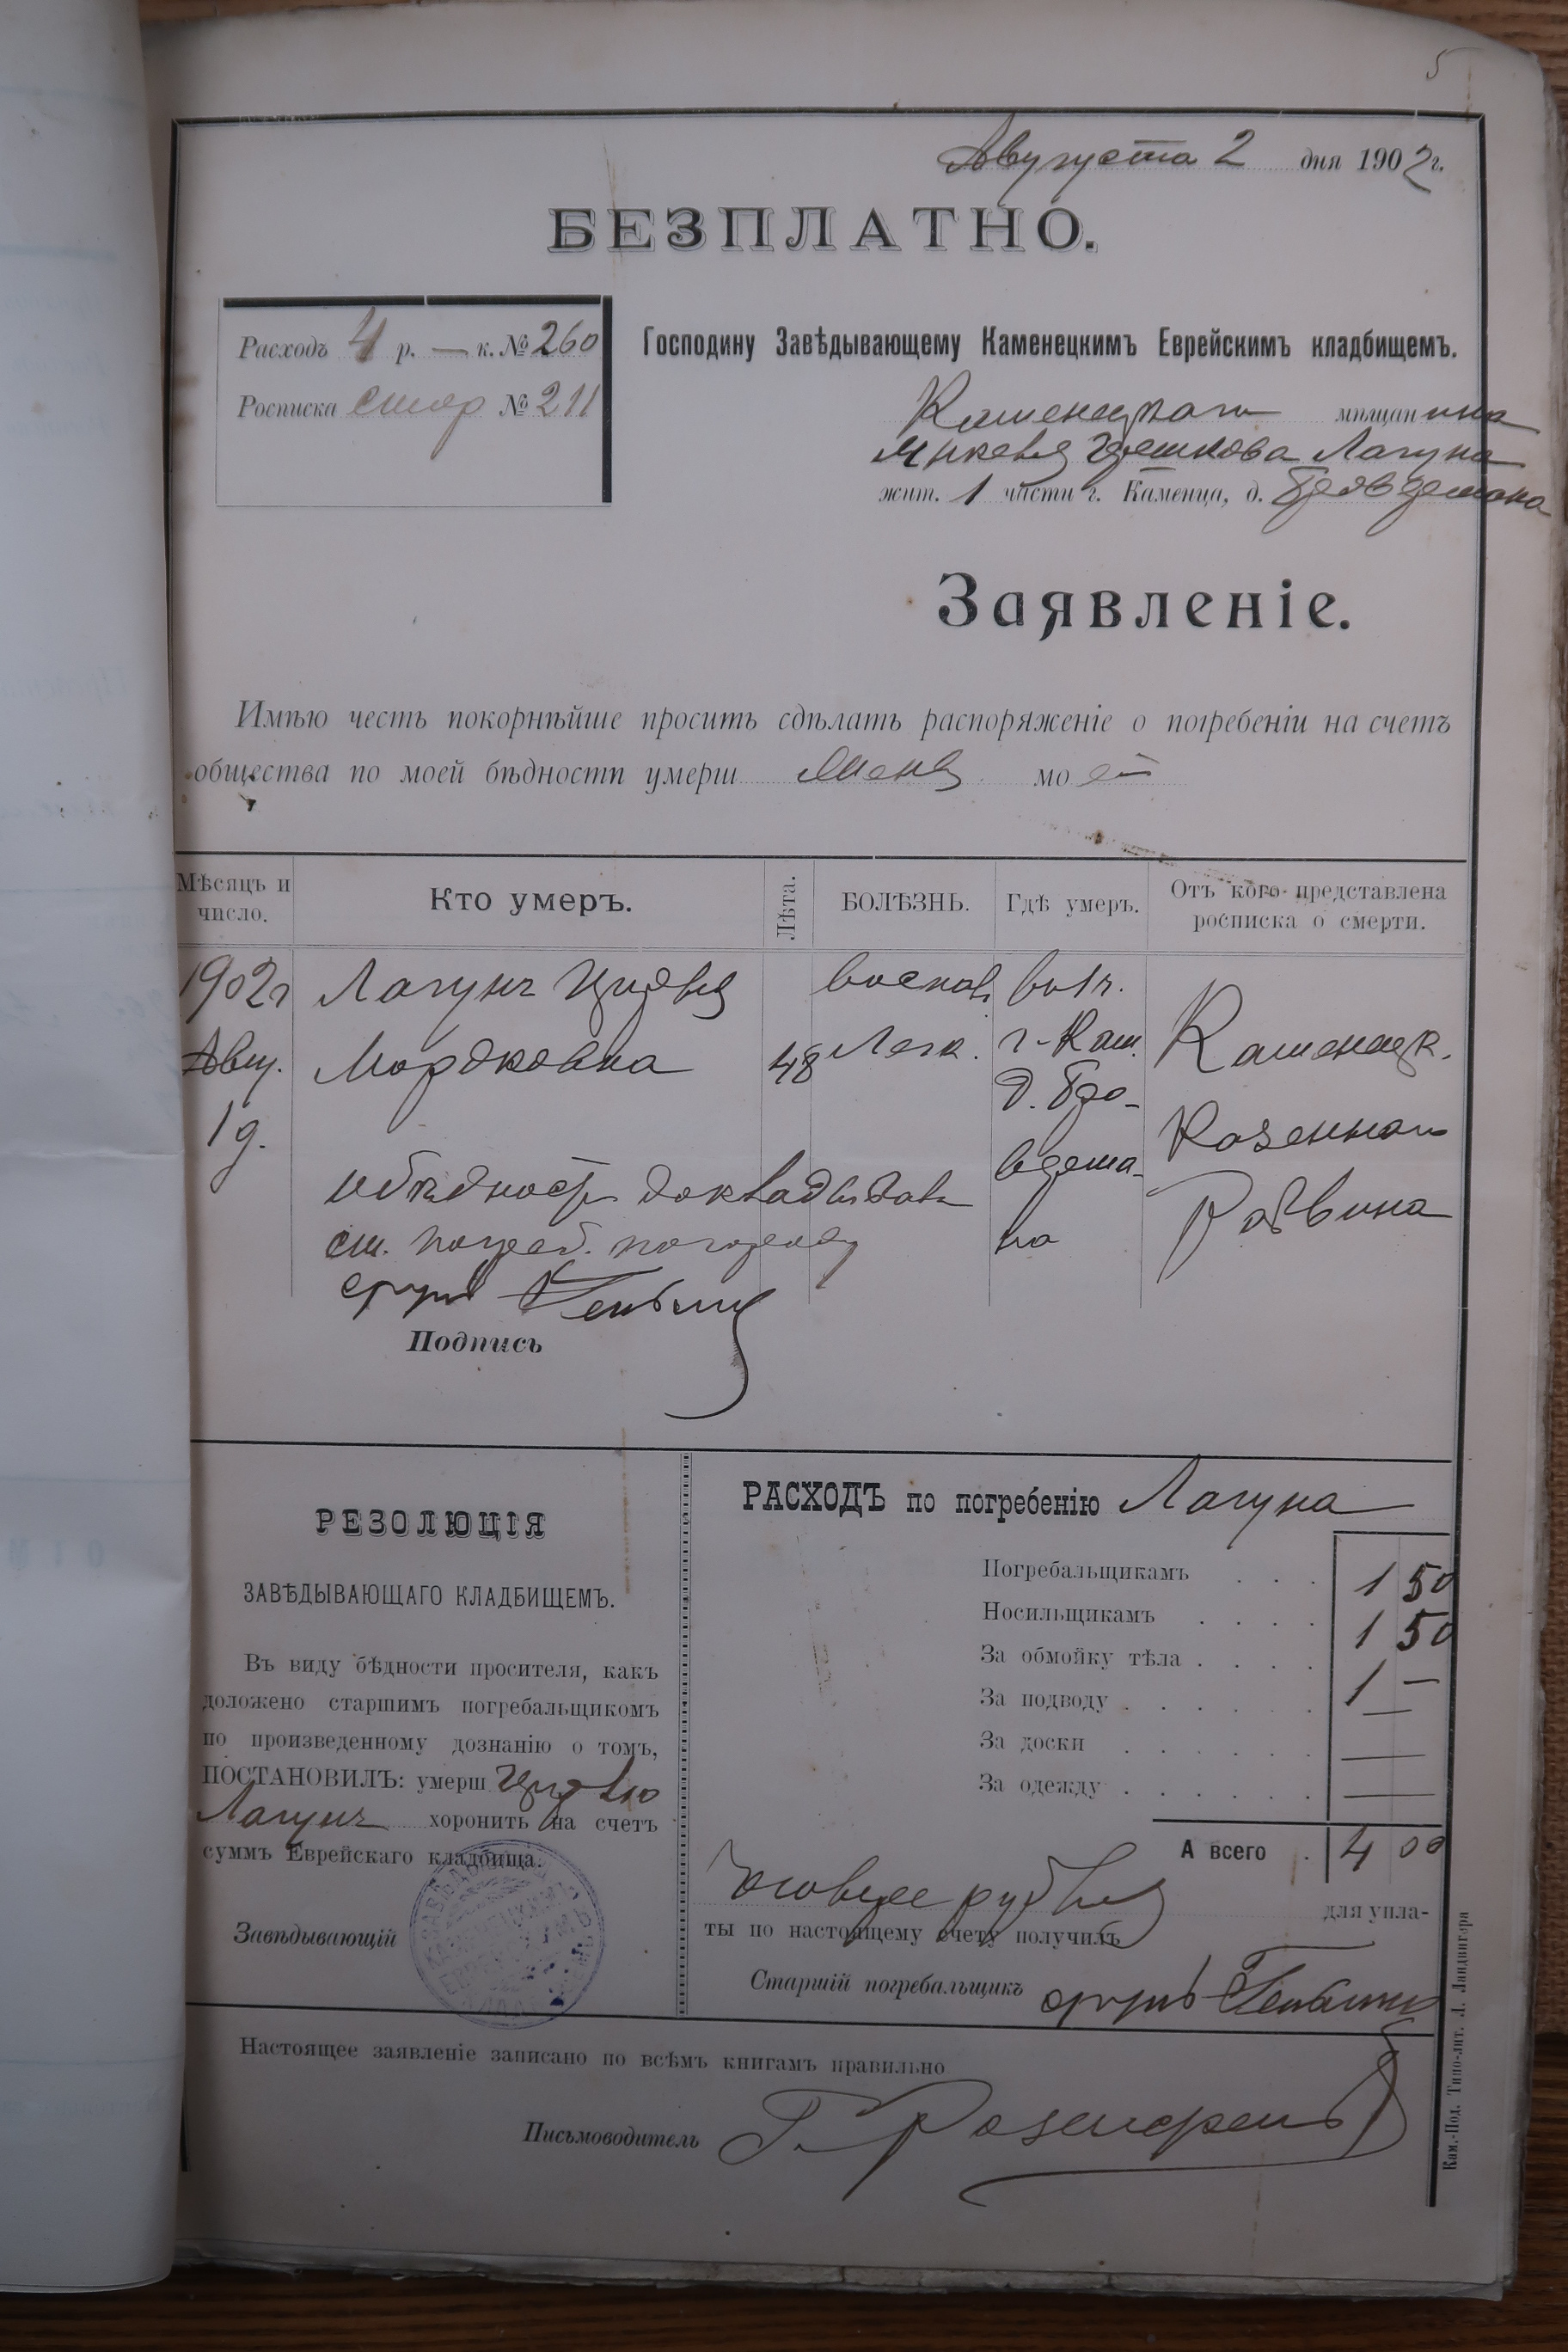 5
Августа 2 дня 1902 г.
БЕЗПЛАТНО.
Расходъ 4 р. — к. № 260
Росписка № 211
Господину Завѣдывающему Каменецкимъ Еврейскимъ кладбищемъ.
Каменецкаго мѣщанина
Лагуна
жит. 1 части г. Каменца, д.
Заявленіе.
Имѣю честь покорнѣйше просить сдѣлать распоряженіе о погребеніи на счетъ
общества по моей бѣдности умерш жены моей
Мѣсяцъ и число.
Кто умеръ.
Лѣта.
БОЛѢЗНЬ.
Гдѣ умеръ.
Отъ кого представлена росписка о смерти.
1902 г
Авг.
1 д.
Лагунъ
Мордковна
48
воспал.
Легк.
в 1 ч.
г. Кам.
д. Бро-
на
Каменецк.
Казеннаго
Раввина
о бѣдности
ст. погреб.
Подпись
РЕЗОЛЮЦІЯ
ЗАВѢДЫВАЮЩАГО КЛАДБИЩЕМЪ.
Въ виду бѣдности просителя, какъ
доложено старшимъ погребальщикомъ
по произведенному дознанію о томъ,
ПОСТАНОВИЛЪ: умерш
Лагунъ хоронить на счетъ
суммъ Еврейскаго кладбища.
Завѣдывающій
РАСХОДЪ по погребенію Лагуна
Погребальщикамъ . . . 1 50
Носильщикамъ . . . . 1 50
За обмойку тѣла . . . . 1 —
За подводу . . . . . —
За доски . . . . . . —
За одежду . . . . . . —
А всего . 4 00
четыре рубля для упла-
ты по настоящему счету получилъ
Старшій погребальщикъ
Настоящее заявленіе записано по всѣмъ книгамъ правильно
Письмоводитель
Кам.-Под. Типо-лит. Л. Ландвигера